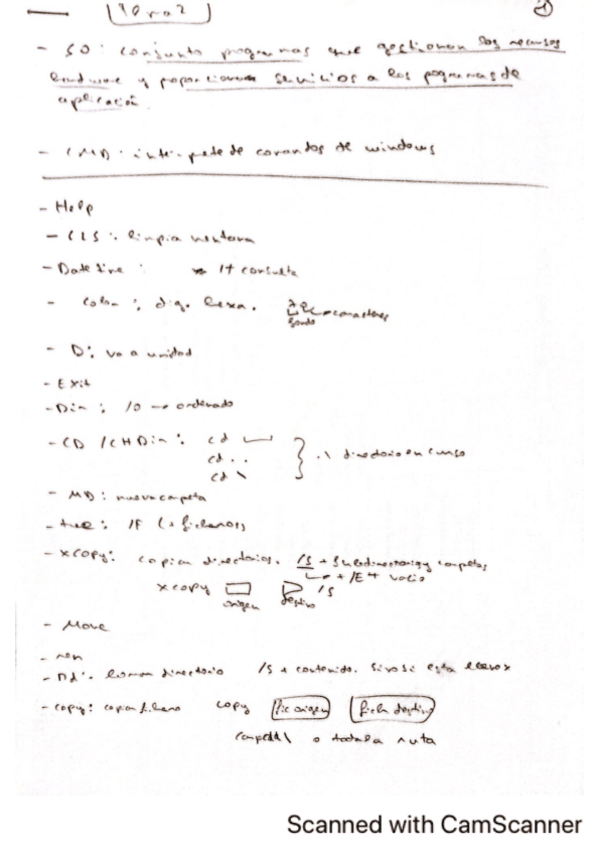 Tema 2
①
- SO: conjunto programas que gestionan los recursos
hardware y proporcionan servicios a los programas de
aplicación.
- CMD: intérprete de comandos de windows
- Help
- CLS: limpia ventana
- Date time: /t consulta
- Color: dig. hexa.
caracteres
fondo
- D: va a unidad
- Exit
- Dir: /O → ordenado
- CD / CHDir: cd
cd ..
cd \
.\ directorio en curso
- MD: nueva carpeta
- tree: /F (+ ficheros)
- xcopy: copiar directorios. /S + Subdirectorios y carpetas
+ /E + vacio
xcopy /S
origen destino
- Move
- ren
- rd: borrar directorio /S + contenido.
- copy: copiar fichero copy fic origen fich destino
carpeta\ o toda la ruta
Scanned with CamScanner